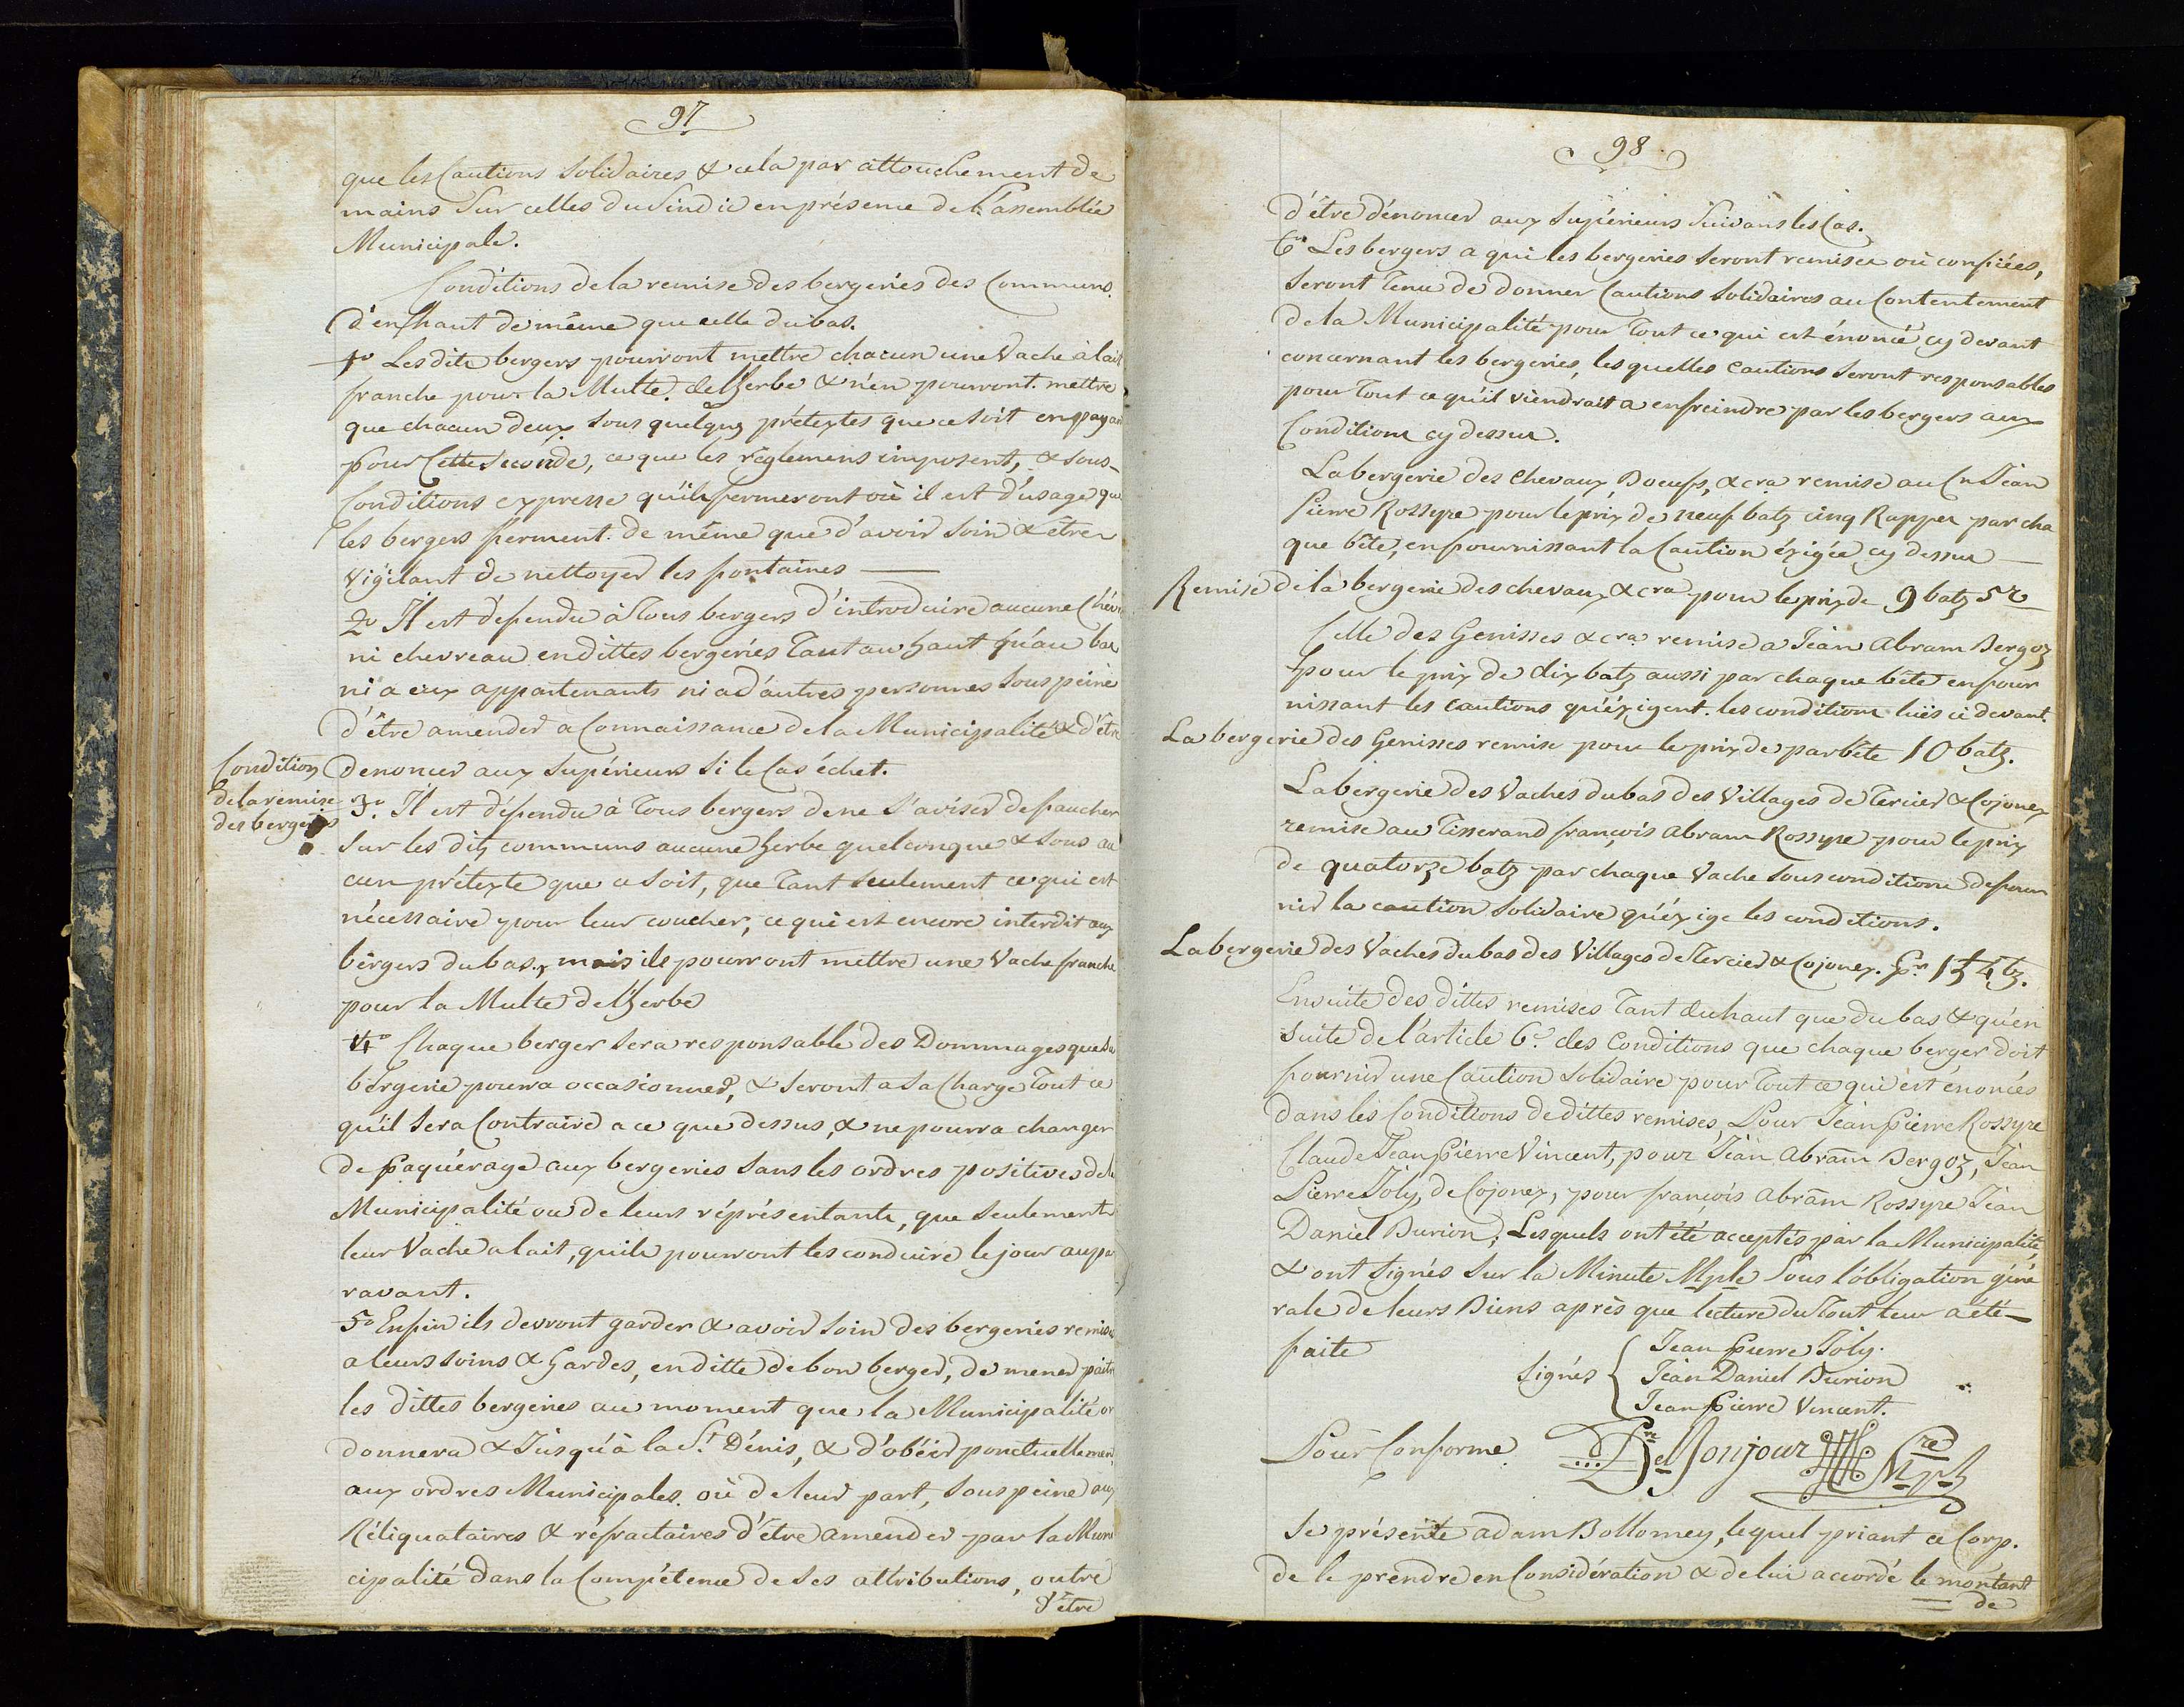 97
que les Cautions Solidaires & cela par attouchement de
mains Sur celles du Sindic en présence de l'assemblée
Municipale.
Conditions de la remise des bergeries des Communs
d'en haut de même que celle du bas.
1o Les dits bergers pourront mettre chacun une Vache à lait
franche pour la Multe de l'herbe & n'en pourront mettre
que chacun deux sous quelques prétextes que ce soit en payant
pour Cette Seconde, ce que les réglemens imposent, & sous
Conditions expresse qu'ils fermeront où il est d'usage que
les bergers ferment. de même que d'avoir soin & être
vigilant de nettoyer les fontaines
2o Il est défendu à Tous bergers d'introduire aucune Chévre
ni chevreau en dittes bergéries Tant au haut qu'au bas
ni a eux appartenants ni a d'autres personnes sous peine
d'être amender a Connaissance de la Municipalité & d'être
Condition
de la remise
des bergeries
denoncer aux Supérieurs Si le Cas échet.
3o. Il est défendu à Tous bergers de ne s'aviser de faucher
Sur les dits communs aucune herbe quelconque & sous au
cun prétexte que ce soit, que Tant Seulement ce qui est
nécessaire pour leur coucher, ce qui est encore interdit aux
bergers du bas, mais ils pourront mettre une Vache franche
pour la Multe de l'herbe
4o Chaque berger Sera responsable des Dommages que sa
bergerie pourra occasionner, & seront a sa Charge Tout ce
qu'il sera Contraire a ce que dessus, & ne pourra changer
de paquérage aux bergeries sans les ordres positives de la
Municipalité ou de leurs réprésentants, que Seulement
leur Vache a lait, qu'ils pourront les conduire le jour aupa
ravant.
5o Enfin ils devront garder & avoir soin des bergeries remises
a leurs soins & Gardes, en ditte de bon berger, de mener paitre
les dittes bergeries au moment que la Municipalité or
donnera & Jusqu'à la St. Dénis, & d'obéir ponctuellement
aux ordres Municipales où de leur part, sous peine aux
Réliquataires & réfractaires d'être amender par la Muni
cipalité dans la Compétence de Ses attributions, outre
d'être
98
d'être dénoncer aux Supérieurs Suivans les Cas.
6o Les bergers a qui les bergeries seront remises où confiées,
seront Tenu de donner Cautions Solidaires au Contentement
de la Municipalité pour Tout ce qui est énoncé cy devant
concernant les bergeries, les quelles Cautions Seront responsables
pour Tout ce qu'il viendrait a enfreindre par les bergers aux
Conditions cy dessus.
La bergerie des Chevaux, Boeufs, & cra remise au Cn Jean
Pierre Rossyre pour le prix de neuf batz cinq Rappes par cha
que bête, en fournissant la Caution éxigée cy dessus
Remise de la bergerie des chevaux & cra pour le prix de 9 batz 5 r
Celle des Genisses & cra. remise a Jean Abram Bergoz
pour le prix de dix batz aussi par chaque bête en four
nissant les Cautions qu'éxigent les conditions luës ci devant.
La bergerie des Genisses remise pour le prix de par bête 10 batz.
La bergerie des Vaches du bas des Villages de Tercier & Cojonex
remise au Tisserand françois Abram Rossyre pour le prix
de quatorze batz par chaque Vache sous conditions de four
nir la caution Solidaire qu'éxige les conditions.
La bergerie des Vaches du bas des Villages de Tercier & Cojonex. Pr 14 bz.
Ensuite des dittes remises Tant du haut que du bas & qu'en
suite de l'article 6e. des Conditions que chaque berger doit
fournir une Caution Solidaire pour Tout ce qui est énoncés
dans les Conditions de dittes remises, Pour Jean Pierre Rossyre
Claude Jean Pierre Vincent, pour Jean Abram Bergoz, Jean
Pierre Joly, de Cojonex, pour françois Abram Rossyre Jean
Daniel Burion; Lesquels ont été acceptés par la Municipalité
& ont Signés Sur la Minute Mple Sous l'obligation géné
rale de leurs Biens après que lecture du Tout leur a été
faite
Signés { Jean Pierre Joly.
Jean Daniel Burion
Jean Pierre Vincent.
Pour Conforme Del Bonjour Sre Mple
Se présente Adam Bollomey, lequel priant ce Corp.
de le prendre en Considération & de lui accordé le montant
de